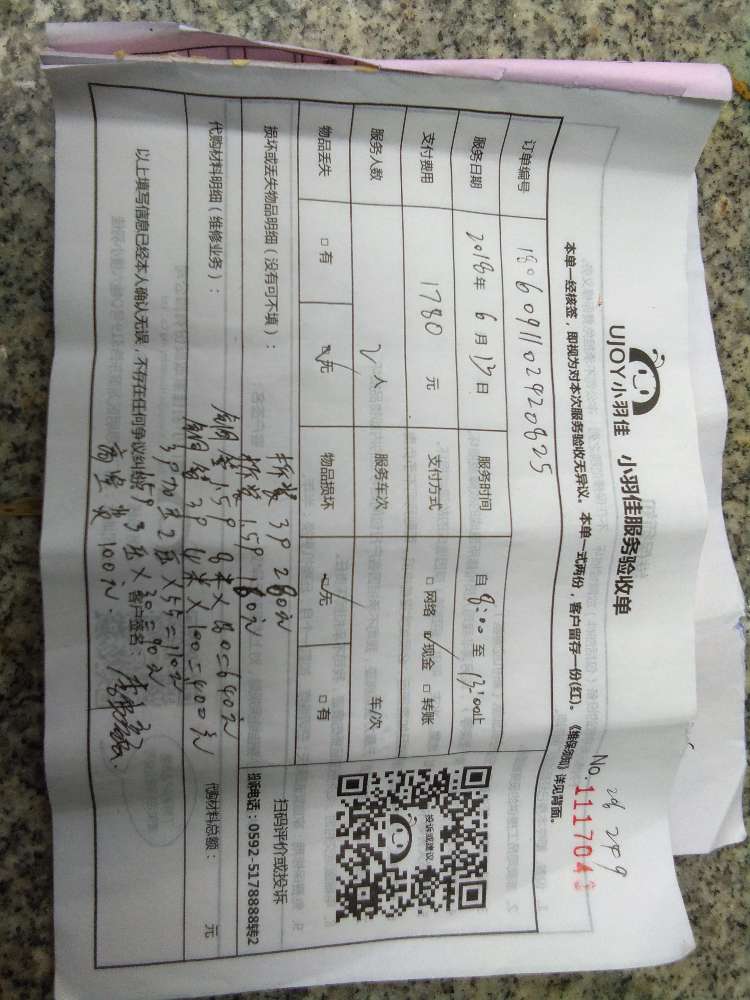 UJOY小羽佳 小羽佳服务验收单
No.1117043
本单一经核签，即视为对本次服务验收无异议。本单一式两份，客户留存一份(红)。《维保须知》详见背面。
订单编号
服务日期 2018年 6月 13日 服务时间 自 8:00 至 13:00止
支付费用 1780 元 支付方式 □网络 ☑现金 □转账
服务人数 2 人 服务车次 车/次
物品丢失 □有 ☑无 物品损坏 ☑无 □有
损坏或丢失物品明细（没有可不填）：
拆装 3P 280元
拆装 1.5P 180元
代购材料明细（维修业务）：
铜管 1.5P 8米×80=640元
铜管 3P 4米×100=400元
3P加压2压×55=110元
1.5P 3压×30=90元
高空费 100元
代购材料总额： 元
投诉或建议
扫码评价或投诉
投诉电话：0592-5178888转2
以上填写信息已经本人确认无误，不存在任何争议纠纷。 客户签名：